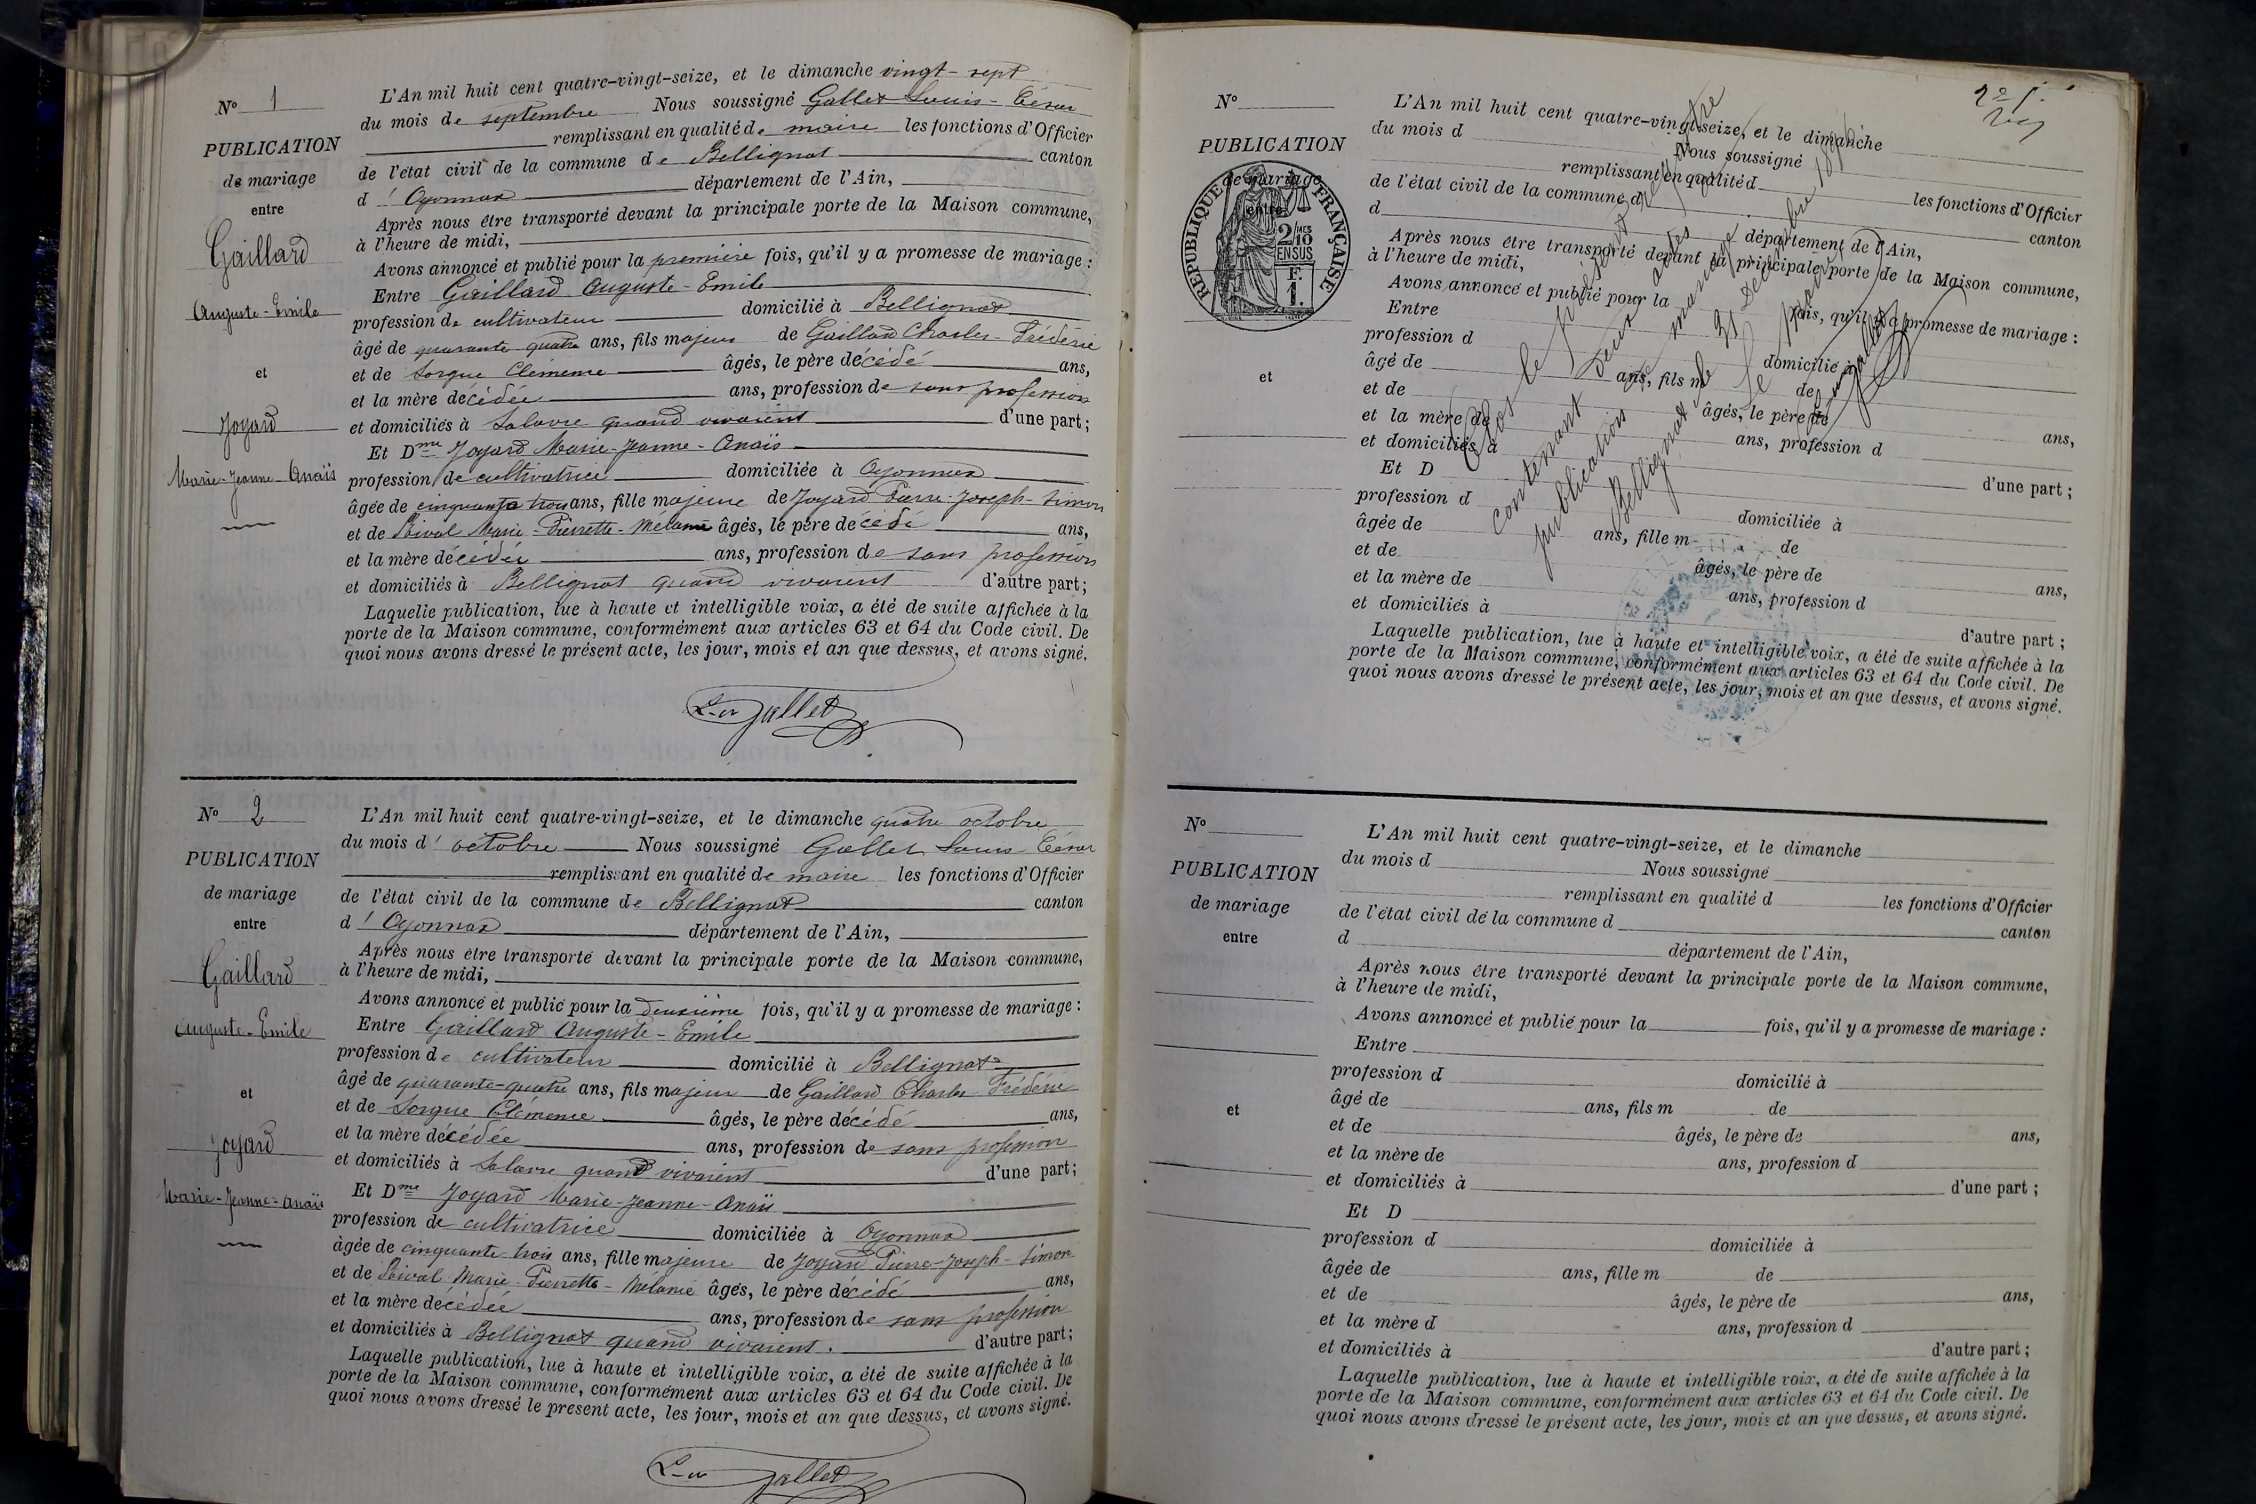 N° 1
PUBLICATION
de mariage
entre
Gaillard
Auguste-Emile
et
Joyard
Marie-Jeanne-Anaïs
L'An mil huit cent quatre-vingt-seize, et le dimanche vingt-sept
du mois de septembre Nous soussigné Gallet Louis-César
remplissant en qualité de maire les fonctions d'Officier
de l'état civil de la commune de Bellignat canton
d'Oyonnax département de l'Ain,
Après nous être transporté devant la principale porte de la Maison commune,
à l'heure de midi,
Avons annoncé et publié pour la première fois, qu'il y a promesse de mariage :
Entre Gaillard Auguste-Emile
profession de cultivateur domicilié à Bellignat
âgé de quarante quatre ans, fils majeur de Gaillard Charles-Frédéric
et de Sorgue Clémence âgés, le père décédé ans,
et la mère décédée ans, profession de sans profession
et domiciliés à Salavre quand vivaient d'une part;
Et Dme Joyard Marie-Jeanne-Anaïs
profession de cultivatrice domiciliée à Oyonnax
âgée de cinquante trois ans, fille majeure de Joyard Pierre-Joseph-Simon
et de Marie-Pierrette-Mélanie âgés, le père décédé ans,
et la mère décédée ans, profession de sans profession
et domiciliés à Bellignat quand vivaient d'autre part;
Laquelle publication, lue à haute et intelligible voix, a été de suite affichée à la
porte de la Maison commune, conformément aux articles 63 et 64 du Code civil. De
quoi nous avons dressé le présent acte, les jour, mois et an que dessus, et avons signé.
Gallet
N° 2
PUBLICATION
de mariage
entre
Gaillard
Auguste-Emile
et
Joyard
Marie-Jeanne-Anaïs
L'An mil huit cent quatre-vingt-seize, et le dimanche quatre octobre
du mois d'octobre Nous soussigné Gallet Louis César
remplissant en qualité de maire les fonctions d'Officier
de l'état civil de la commune de Bellignat canton
d'Oyonnax département de l'Ain,
Après nous être transporté devant la principale porte de la Maison commune,
à l'heure de midi,
Avons annoncé et publié pour la deuxième fois, qu'il y a promesse de mariage :
Entre Gaillard Auguste-Emile
profession de cultivateur domicilié à Bellignat
âgé de quarante-quatre ans, fils majeur de Gaillard Charles Frédéric
et de Sorgue Clémence âgés, le père décédé ans,
et la mère décédée ans, profession de sans profession
et domiciliés à Salavre quand vivaient d'une part;
Et Dme Joyard Marie-Jeanne-Anaïs
profession de cultivatrice domiciliée à Oyonnax
âgée de cinquante trois ans, fille majeure de Joyard Pierre-Joseph-Simon
et de Marie-Pierrette-Mélanie âgés, le père décédé ans,
et la mère décédée ans, profession de sans profession
et domiciliés à Bellignat quand vivaient. d'autre part;
Laquelle publication, lue à haute et intelligible voix, a été de suite affichée à la
porte de la Maison commune, conformément aux articles 63 et 64 du Code civil. De
quoi nous avons dressé le présent acte, les jour, mois et an que dessus, et avons signé.
Gallet
N°
PUBLICATION
de mariage
entre
RÉPUBLIQUE FRANÇAISE
2/10MES
EN SUS
F.
1.
et
L'An mil huit cent quatre-vingt-seize, et le dimanche
du mois d Nous soussigné
remplissant en qualité d les fonctions d'Officier
de l'état civil de la commune d canton
d département de l'Ain,
Après nous être transporté devant la principale porte de la Maison commune,
à l'heure de midi,
Avons annoncé et publié pour la fois, qu'il y a promesse de mariage :
Entre
profession d domicilié à
âgé de ans, fils m de
et de âgés, le père de ans,
et la mère de ans, profession d
et domiciliés à d'une part;
Et D
profession d domiciliée à
âgée de ans, fille m de
et de âgés, le père de ans,
et la mère de ans, profession d
et domiciliés à d'autre part;
Laquelle publication, lue à haute et intelligible voix, a été de suite affichée à la
porte de la Maison commune, conformément aux articles 63 et 64 du Code civil. De
quoi nous avons dressé le présent acte, les jour, mois et an que dessus, et avons signé.
Clos le présent registre
contenant deux actes de
publications de mariage
Bellignat le 31 Décembre 1896
Gallet
N°
PUBLICATION
de mariage
entre
et
L'An mil huit cent quatre-vingt-seize, et le dimanche
du mois d Nous soussigné
remplissant en qualité d les fonctions d'Officier
de l'état civil de la commune d canton
d département de l'Ain,
Après nous être transporté devant la principale porte de la Maison commune,
à l'heure de midi,
Avons annoncé et publié pour la fois, qu'il y a promesse de mariage :
Entre
profession d domicilié à
âgé de ans, fils m de
et de âgés, le père de ans,
et la mère de ans, profession d
et domiciliés à d'une part;
Et D
profession d domiciliée à
âgée de ans, fille m de
et de âgés, le père de ans,
et la mère d ans, profession d
et domiciliés à d'autre part;
Laquelle publication, lue à haute et intelligible voix, a été de suite affichée à la
porte de la Maison commune, conformément aux articles 63 et 64 du Code civil. De
quoi nous avons dressé le présent acte, les jour, mois et an que dessus, et avons signé.